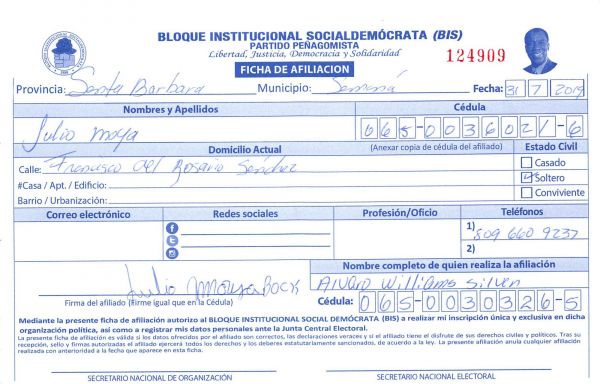 BLOQUE INSTITUCIONAL SOCIALDEMÓCRATA (BIS)
PARTIDO PEÑAGOMISTA
Libertad, Justicia, Democracia y Solidaridad
124909
FICHA DE AFILIACION
Provincia: Santa Barbara Municipio: Semaná Fecha: 31 7 2019
Nombres y Apellidos Cédula
Julio Moya 065-0036021-6
Domicilio Actual (Anexar copia de cédula del afiliado) Estado Civil
Calle: Francisco del Rosario Sánchez Casado
#Casa / Apt. / Edificio: Soltero
Barrio / Urbanización: Conviviente
Correo electrónico Redes sociales Profesión/Oficio Teléfonos
1) 809 660 9237
2)
Nombre completo de quien realiza la afiliación
Julio Moya Alvaro Williams Silven
Firma del afiliado (Firme igual que en la Cédula) Cédula: 065-0030326-5
Mediante la presente ficha de afiliación autorizo al BLOQUE INSTITUCIONAL SOCIAL DEMÓCRATA (BIS) a realizar mi inscripción única y exclusiva en dicha
organización política, así como a registrar mis datos personales ante la Junta Central Electoral.
La presente ficha de afiliación es válida si los datos ofrecidos por el afiliado son correctos, las declaraciones veraces y si el afiliado tiene el disfrute de sus derechos civiles y políticos. Tras su
recepción, sello y firmas autorizadas el afiliado ejercerá todos los derechos y los deberes estatutariamente sancionados, de acuerdo a la ley. La presente afiliación anula cualquier afiliación
realizada con anterioridad a la fecha que aparece en esta ficha.
SECRETARIO NACIONAL DE ORGANIZACIÓN SECRETARIO NACIONAL ELECTORAL